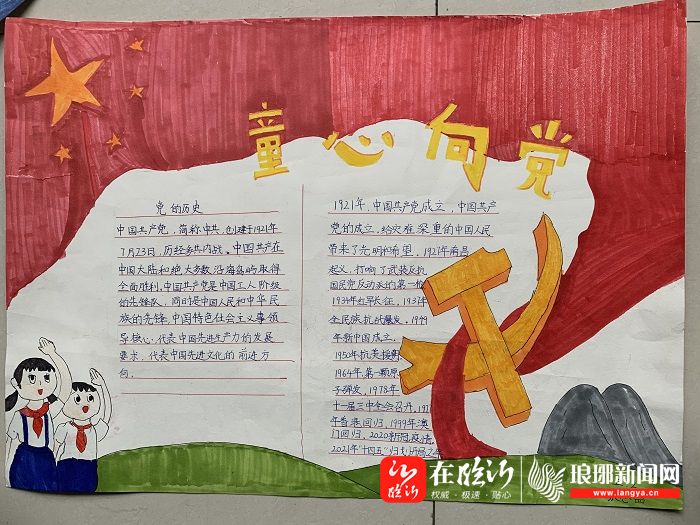 童心向党
党的历史
中国共产党，简称中共，创建于1921年
7月23日，历经多共内战，中国共产在
中国大陆和绝大多数沿海岛屿取得
全面胜利，中国共产党是中国工人阶级
的先锋队，同时是中国人民和中华民
族的先锋，中国特色社会主义事领
导核心，代表中国先进生产力的发展
要求，代表中国先进文化的前进方
向。
1921年，中国共产党成立，中国共产
党的成立，给灾难深重的中国人民
带来了光明和希望，1927年南昌
起义，打响了武装反抗
国民党反动派的第一枪
1934年红军长征，1937年
全民族抗战爆发，1949
年新中国成立，
1950年抗美援朝
1964年，第一颗原
子弹发，1978年
十一届三中全会召开，197
年香港回归，1999年澳
门回归，2020新冠疫情，
2021年"十四五"归划开局之年
在临沂
权威·极速·贴心
琅琊新闻网
www.langya.cn